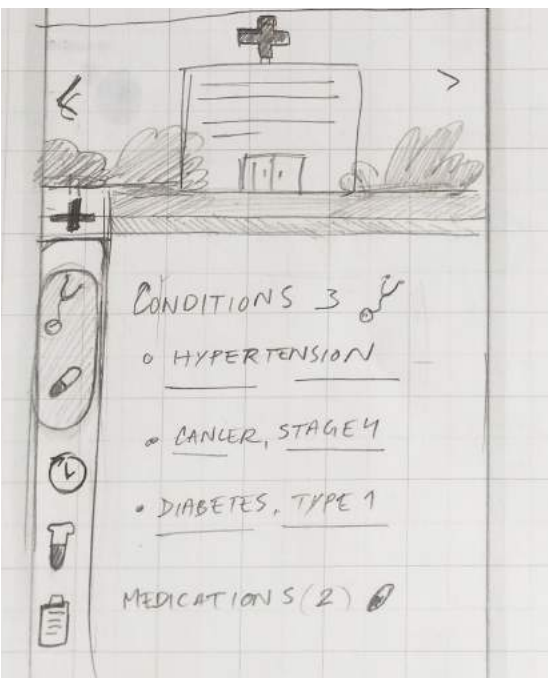 CONDITIONS 3
HYPERTENSION
CANCER, STAGE 4
DIABETES, TYPE 1
MEDICATIONS (2)